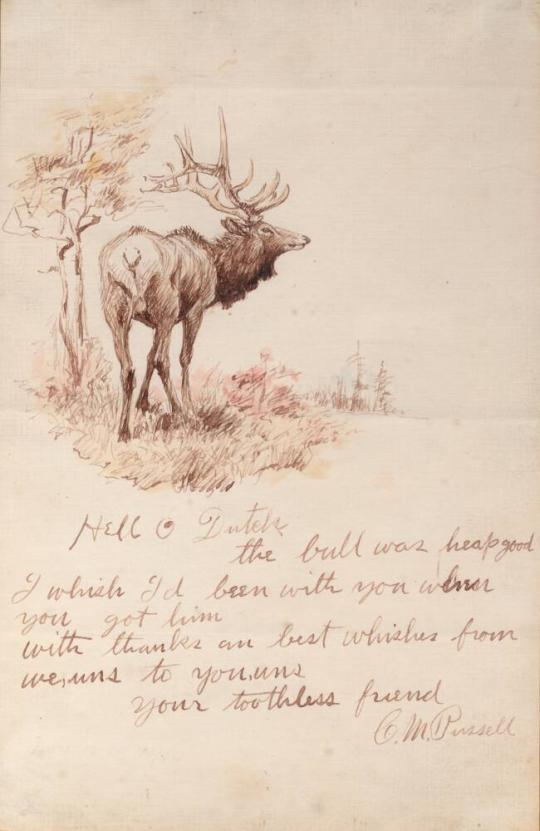 Hell O Dutch
the bull was heap good
I whish I'd been with you when
you got him
with thanks an best whishes from
we,uns to you,uns
your toothless friend
C.M. Russell